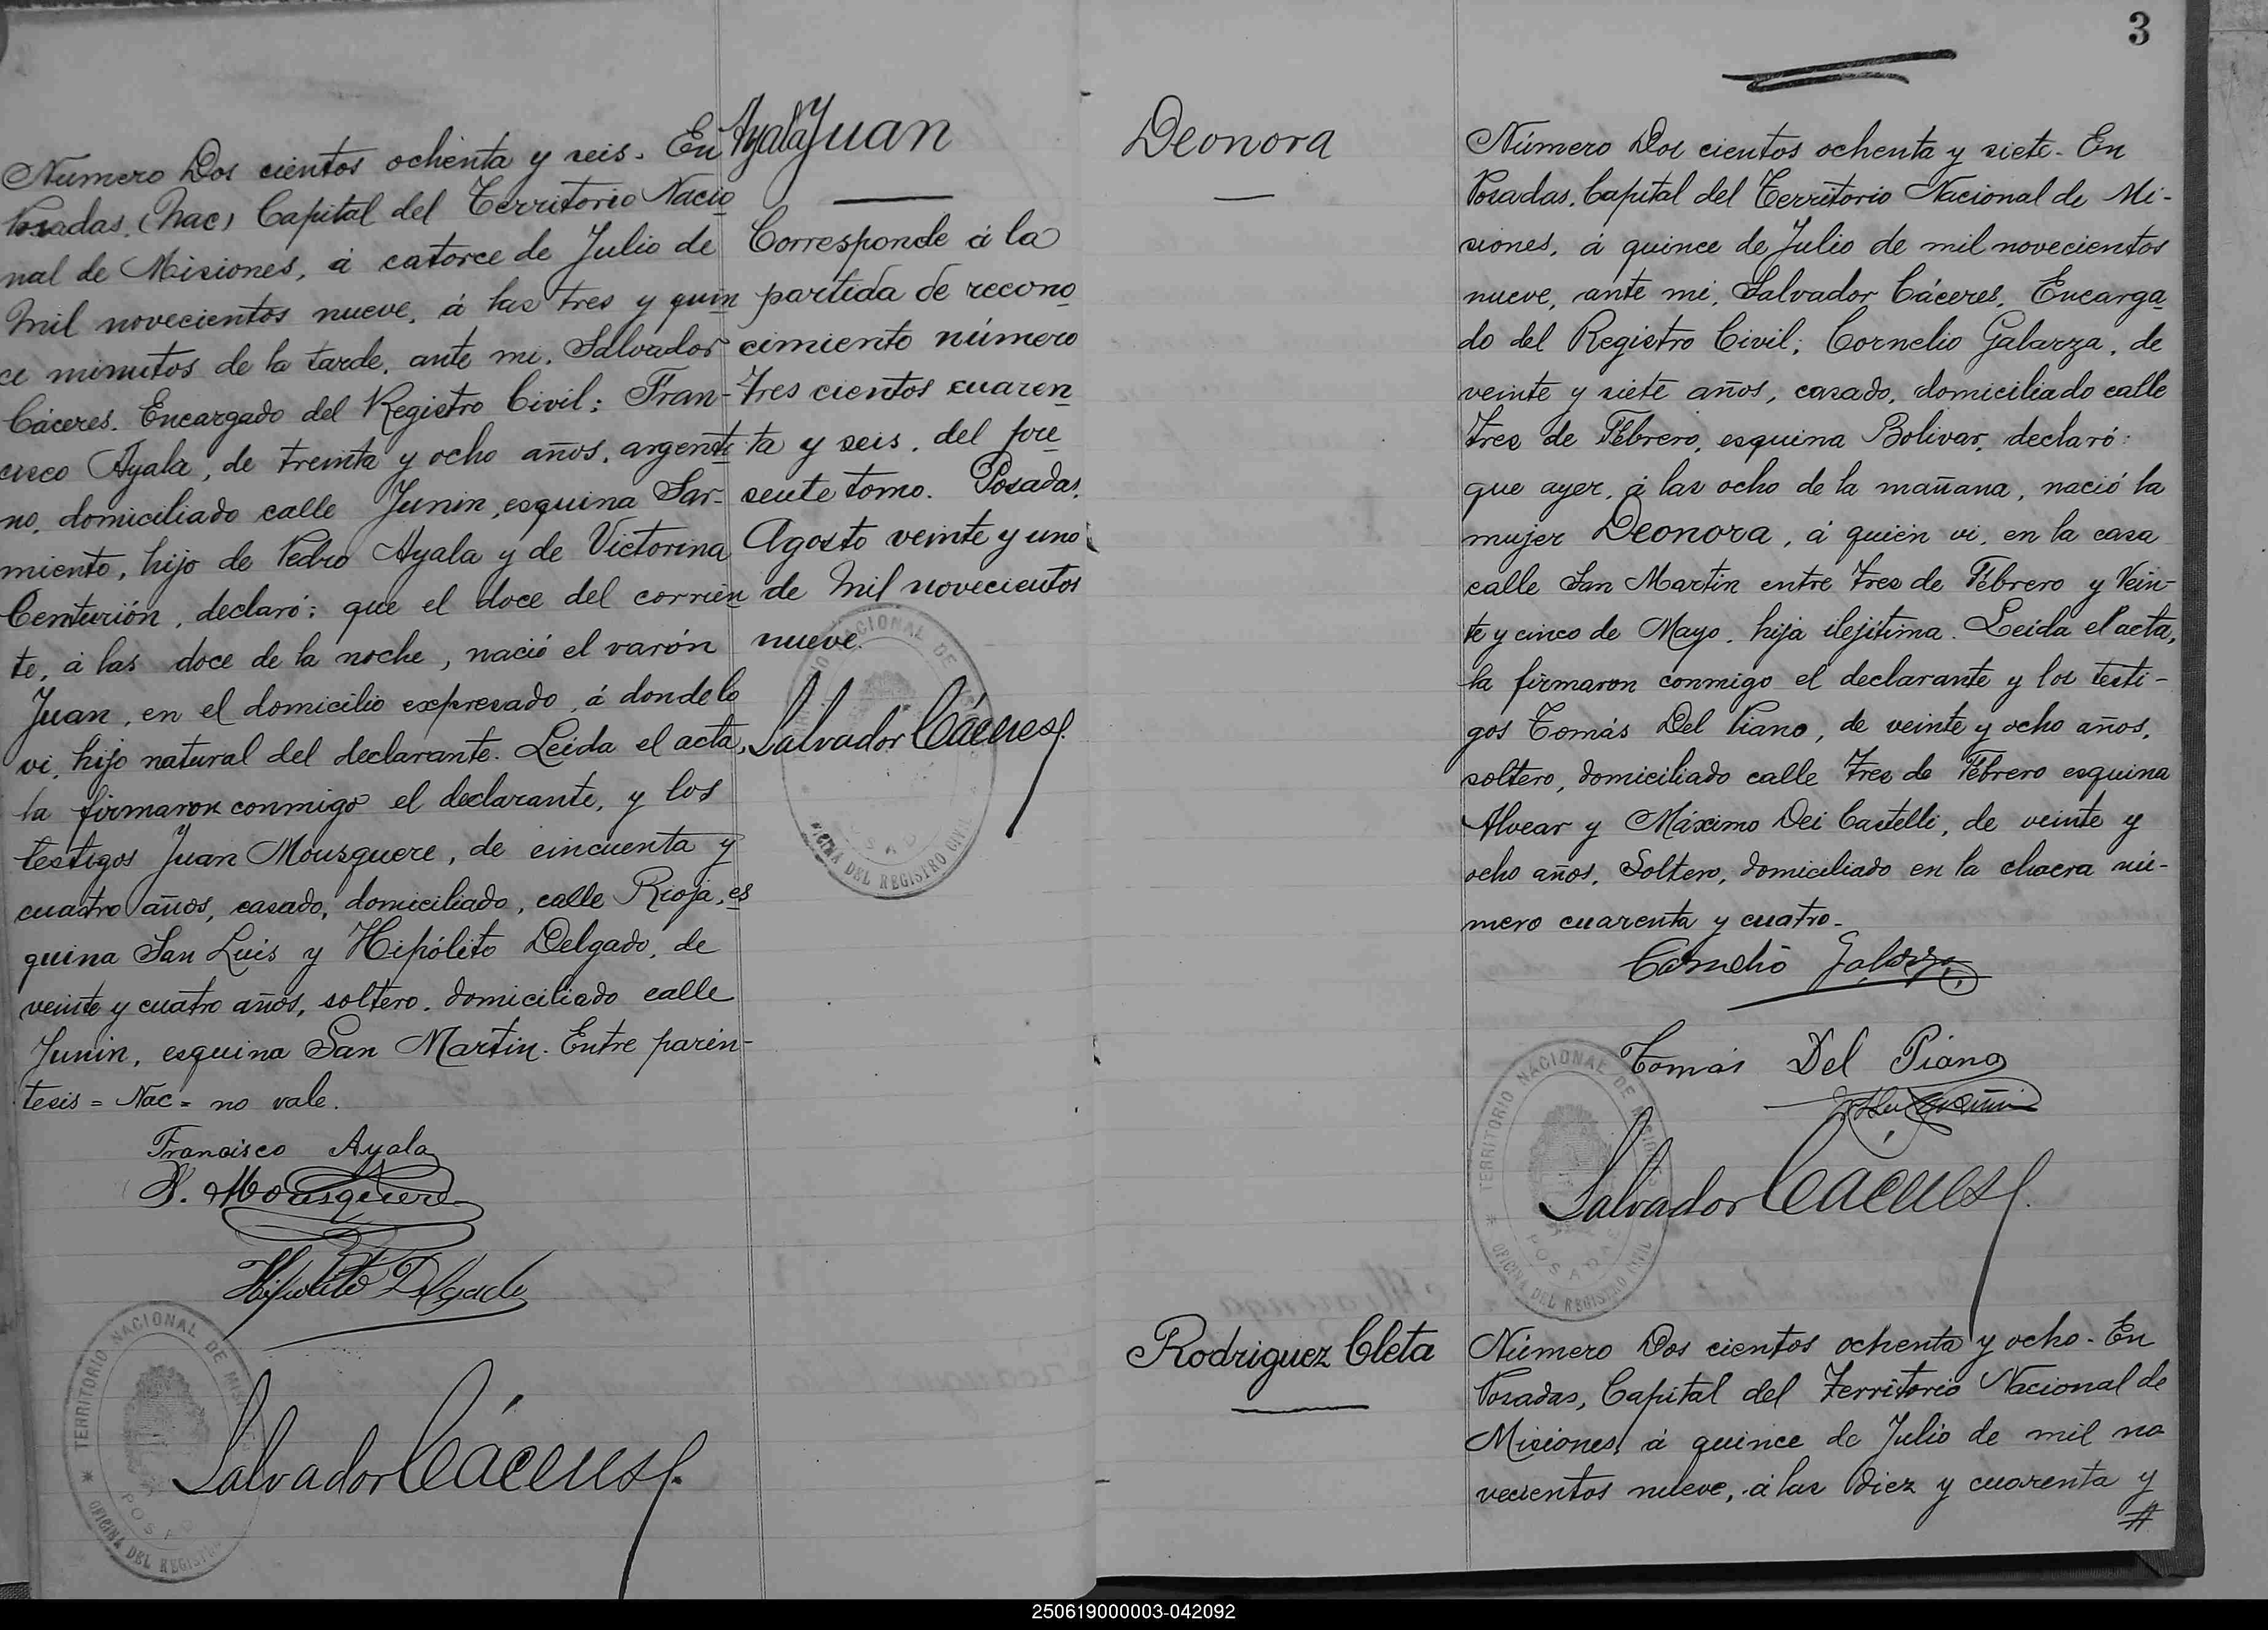 Número Dos cientos ochenta y seis. En
Posadas, (Nac) Capital del Territorio Nacio
nal de Misiones, á catorce de Julio de
Mil novecientos nueve, á las tres y quin
ce minutos de la tarde, ante mi, Salvador
Cáceres, Encargado del Registro Civil; Fran-
cisco Ayala, de treinta y ocho años, argenti
no, domiciliado calle Junin, esquina Sar-
miento, hijo de Pedro Ayala y de Victorina
Centurión, declaró: que el doce del corrien
te, á las doce de la noche, nació el varón
Juan, en el domicilio expresado, á donde lo
vi, hijo natural del declarante. Leida el acta,
la firmaron conmigo el declarante, y los
testigos Juan Mousquere, de cincuenta y
cuatro años, casado, domiciliado, calle Rioja, es
quina San Luis y Hipólito Delgado, de
veinte y cuatro años, soltero, domiciliado calle
Junin, esquina San Martin. Entre parén-
tesis = Nac = no vale.
Francisco Ayala
J. Mousquere
Hipolito Delgado
TERRITORIO NACIONAL DE MIS
OFICINA DEL REGISTR
POSAD
Salvador Cáceres
Ayala Juan
Corresponde á la
partida de recono
cimiento número
tres cientos cuaren
ta y seis, del pre
sente tomo. Posadas,
Agosto veinte y uno
de Mil novecientos
nueve.
Salvador Cáceres
NACIONAL DE
DEL REGISTRO CIVIL
3
Deonora
Número Dos cientos ochenta y siete. En
Posadas, Capital del Territorio Nacional de Mi-
siones, á quince de Julio de mil novecientos
nueve, ante mi, Salvador Cáceres, Encarga
do del Registro Civil; Cornelio Galarza, de
veinte y siete años, casado, domiciliado calle
Tres de Febrero, esquina Bolivar, declaró:
que ayer, á las ocho de la mañana, nació la
mujer Deonora, á quien vi, en la casa
calle San Martin entre Tres de Febrero y Vein-
te y cinco de Mayo, hija ilejítima. Leida el acta,
la firmaron conmigo el declarante y los testi-
gos Tomás Del Piano, de veinte y ocho años,
soltero, domiciliado calle Tres de Febrero esquina
Alvear y Máximo Dei Castelli, de veinte y
ocho años, Soltero, domiciliado en la chacra nú-
mero cuarenta y cuatro.
Cornelio Galarza
Tomás Del Piano
TERRITORIO NACIONAL DE MISIONES
OFICINA DEL REGISTRO CIVIL
POSADAS
Salvador Cáceres
Rodriguez Cleta
Número Dos cientos ochenta y ocho. En
Posadas, Capital del Territorio Nacional de
Misiones, á quince de Julio de mil no
vecientos nueve, á las Diez y cuarenta y
#
250619000003-042092